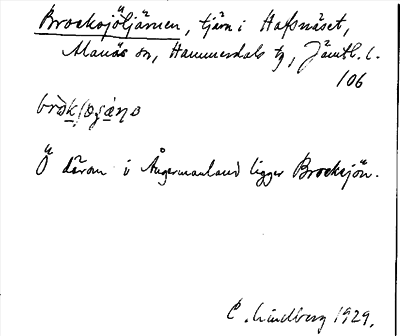 Brocksjötjärnen, tjärn i Hafsnäset,
Alanäs sn, Hammerdals tg, Jämtl. l.
106
Ö därom i Ångermanland ligger Brocksjön.
C. Lindberg 1929.